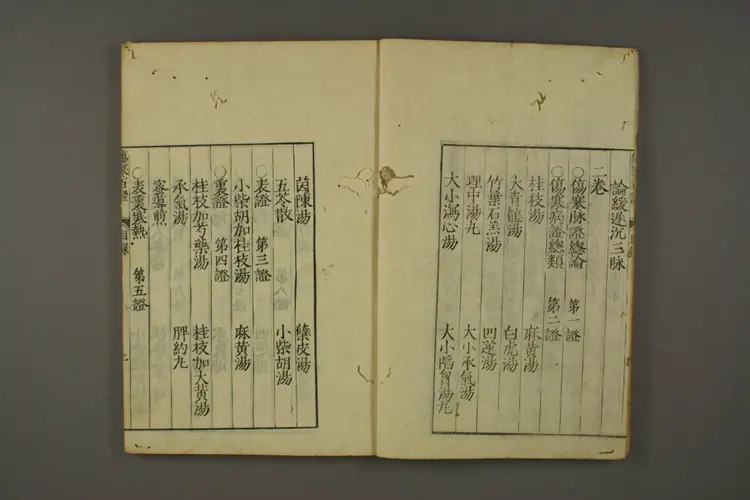 論緩遲沉三脉
二卷
○傷寒脉證總論 第一證
○傷寒病證總類 第二證
桂枝湯 麻黄湯
大青龍湯 白虎湯
竹葉石羔湯 四逆湯
理中湯丸 大小承氣湯
大小瀉心湯 大小陷胷湯丸
茵陳湯 蘗皮湯
五苓散 小柴胡湯
○表證 第三證
小柴胡加桂枝湯 麻黄湯
○裏證 第四證
桂枝加芍藥湯 桂枝加大黄湯
承氣湯 脾約丸
蜜導煎
○表裏寒熱 第五證
目錄